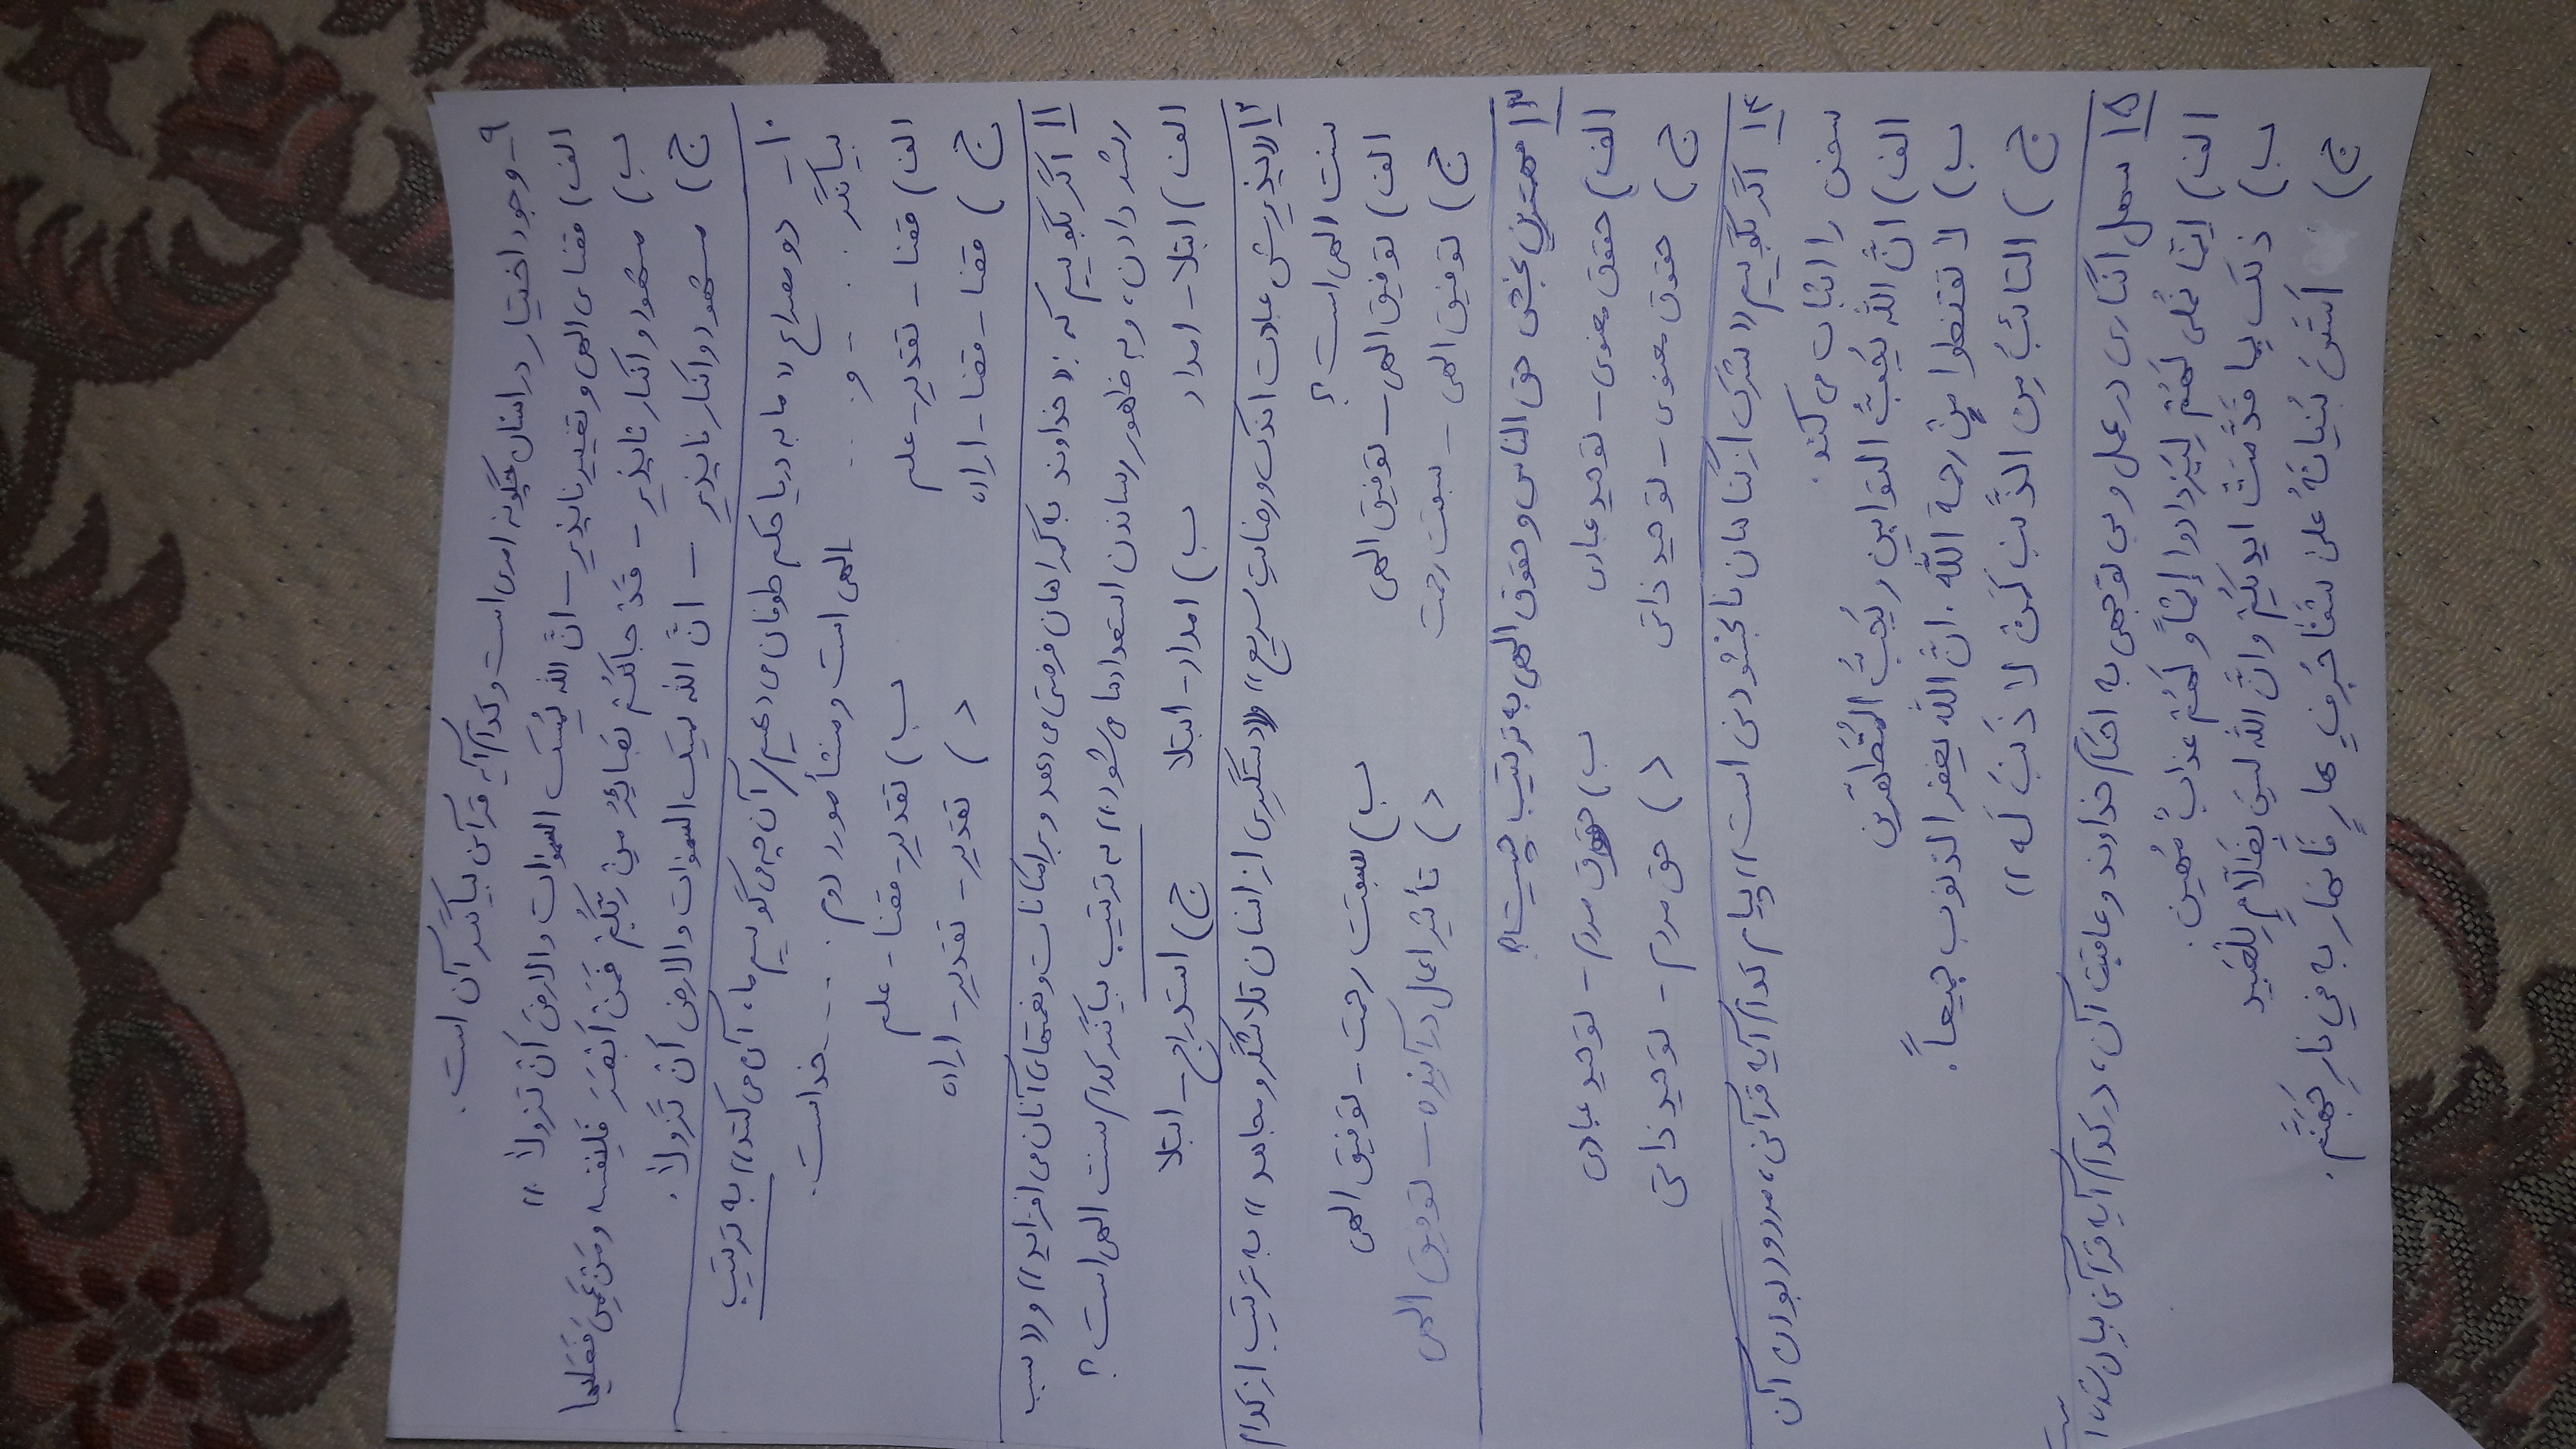 ۹- وجود اختیار در انسان چگونه امری است و کدام آیه قرآنی بیانگر آن است.
الف) قضای الهی و تغییر ناپذیر - انَّ الله یُمسِک السمٰوات والارضَ أنْ تَزولا »
ب) مشهود و انکار ناپذیر - قَدْ جائَکُمْ بَصائِرُ مِنْ رَبِّکُمْ فَمَنْ اَبْصَرَ فَلِنَفسه ومَنْ عَمِیَ فَعَلیها
ج) مشهود و انکار ناپذیر - انَّ الله یمسک السمٰوات والارض أنْ تَزولا.
۱۰- دو مصراع « ما به دریا حکم طوفان می دهیم / آن چه می گوییم ما، آن می کند» به ترتیب
بیانگر ... و ... الهی است و منشأ مورد دوم ..... خداست.
الف) قضا - تقدیر - علم ب) تقدیر - قضا - علم
ج) قضا - قضا - اراده د) تقدیر - تقدیر - اراده
۱۱ اگر بگوییم که: « خداوند به گمراهان فرصتی می دهد و بر امکانات و نعمتهای آنان می افزاید» و «سبب
رشد دادن، و به ظهور رساندن استعدادها می شود.» به ترتیب بیانگر کدام سنت الهی است؟
الف) ابتلا - امداد ب) امداد - ابتلا ج) استدراج - ابتلا
۱۲ «پذیرش عبادت اندک و رضایتِ سریع» و «دستگیری از انسان تلاشگر و مجاهد» به ترتیب از کدام
سنت الهی است؟
الف) توفیق الهی - توفیق الهی ب) سبقت رحمت - توفیق الهی
ج) توفیق الهی - سبقت رحمت د) تأثیر اعمال در آینده - توفیق الهی
۱۳ مهمترین بخش حق الناس و حقوق الهی به ترتیب چیست؟
الف) حقوق معنوی - توحید عبادی ب) حقوق مردم - توحید عبادی
ج) حقوق معنوی - توحید ذاتی د) حق مردم - توحید ذاتی
۱۴ اگر بگوییم «شرک از گناهان نابخشودنی است» پیام کدام آیه قرآنی، مردود بودن آن
سخن را اثبات می کند.
الف) انَّ اللّه یُحِبُّ التوابین و یُحِبُّ المُتَطَهّرین
ب) لا تقنطوا مِنْ رحمة اللّه. انَّ اللّه یغفر الذنوب جمیعاً.
ج) التائبُ مِن الذَّنب کَمَنْ لا ذَنبَ لَه »
۱۵ سهل انگاری در عمل و بی توجهی به احکام خداوند و عاقبت آن، در کدام آیه قرآنی بیان شده
الف) اِنَّما نُملی لَهُمْ لِیَزدادوا إثماً و لَهُمْ عذابٌ مُهین.
ب) ذٰلک بِما قَدَّمَتْ ایدیکُمْ وانَّ اللّه لیسَ بِظَلّامٍ لِلْعَبید
ج) اَسَّسَ بُنیانَهُ علیٰ شَفا جُرفٍ هارٍ فَانهارَ به في نارِ جَهَنَّم.